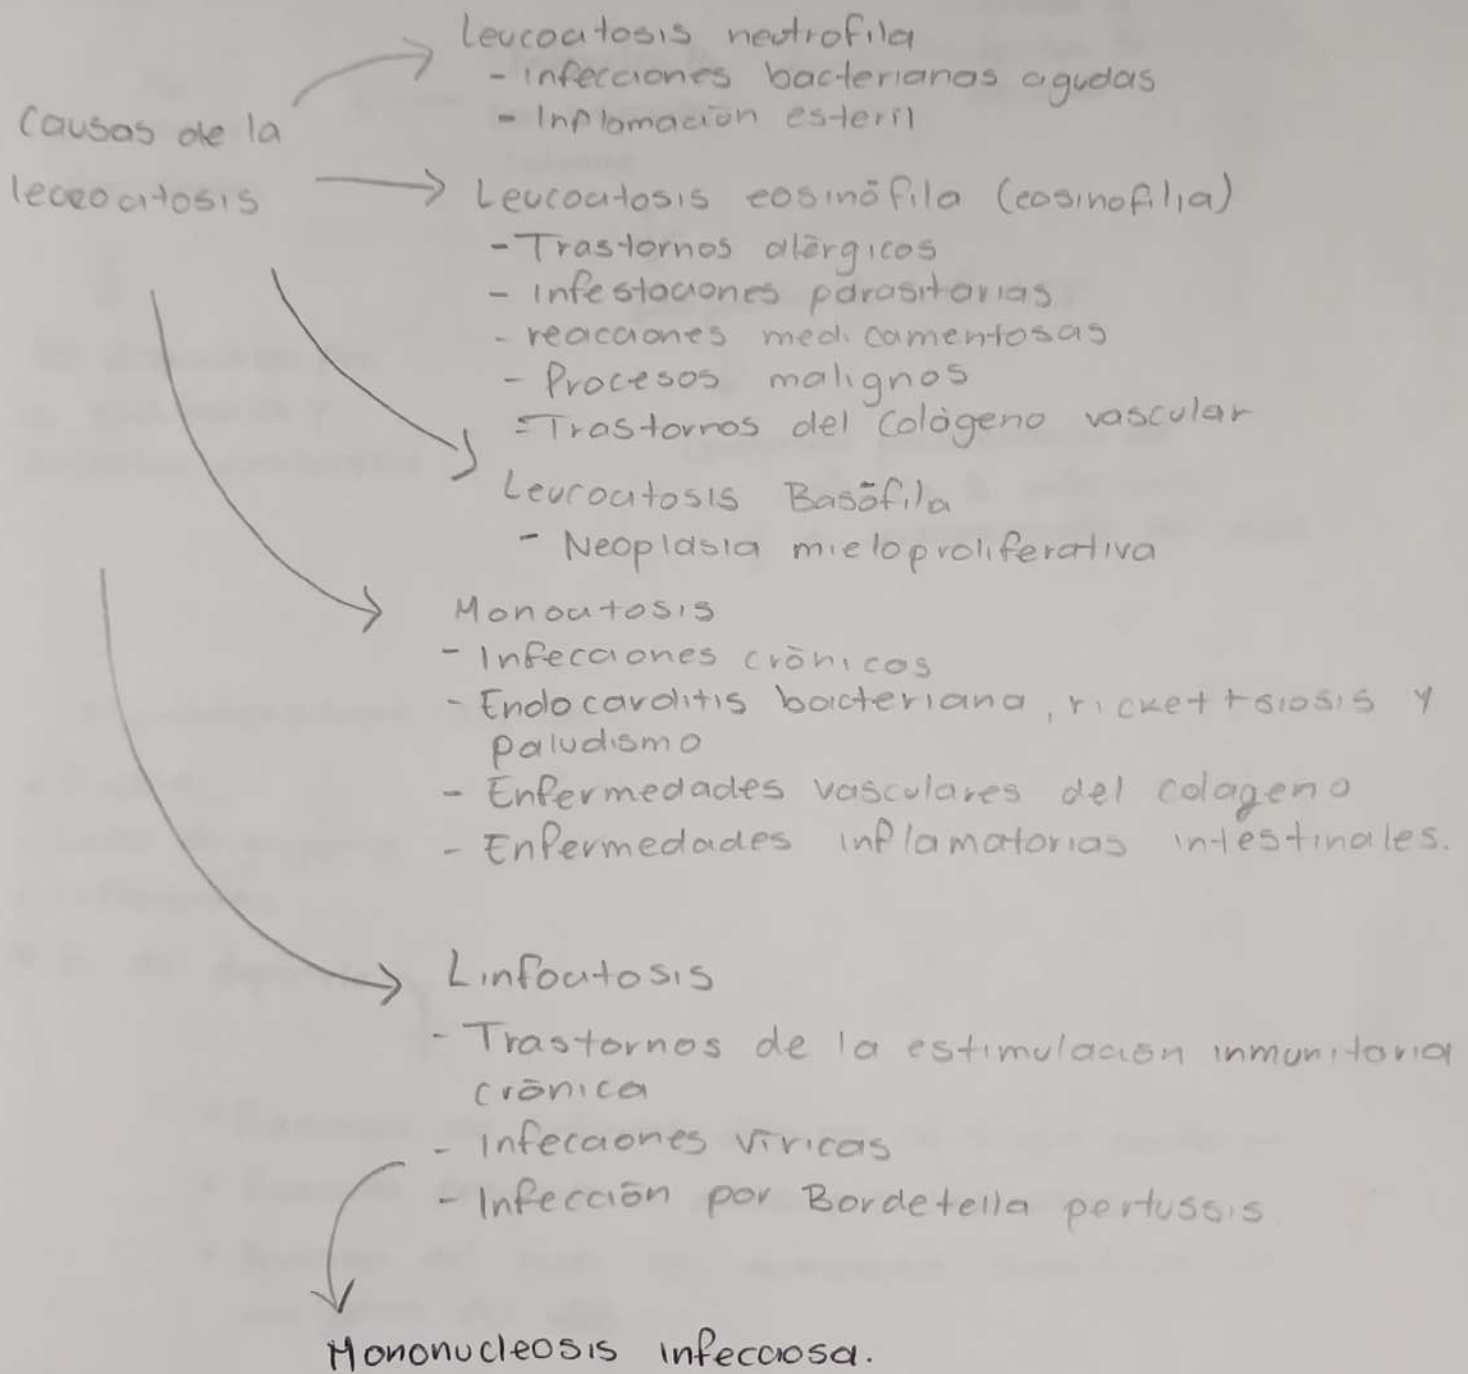 Causas de la
leucocitosis
Leucocitosis neutrofila
- infecciones bacterianas agudas
- Inflamación esteril
Leucocitosis eosinófila (eosinofilia)
- Trastornos alérgicos
- infestaciones parasitarias
- reacciones medicamentosas
- Procesos malignos
- Trastornos del colágeno vascular
Leucocitosis Basófila
- Neoplasia mieloproliferativa
Monocitosis
- Infecciones crónicas
- Endocarditis bacteriana, rickettsiosis y
paludismo
- Enfermedades vasculares del colageno
- Enfermedades inflamatorias intestinales.
Linfocitosis
- Trastornos de la estimulación inmunitaria
crónica
- Infecciones víricas
- Infección por Bordetella pertussis
Mononucleosis infecciosa.